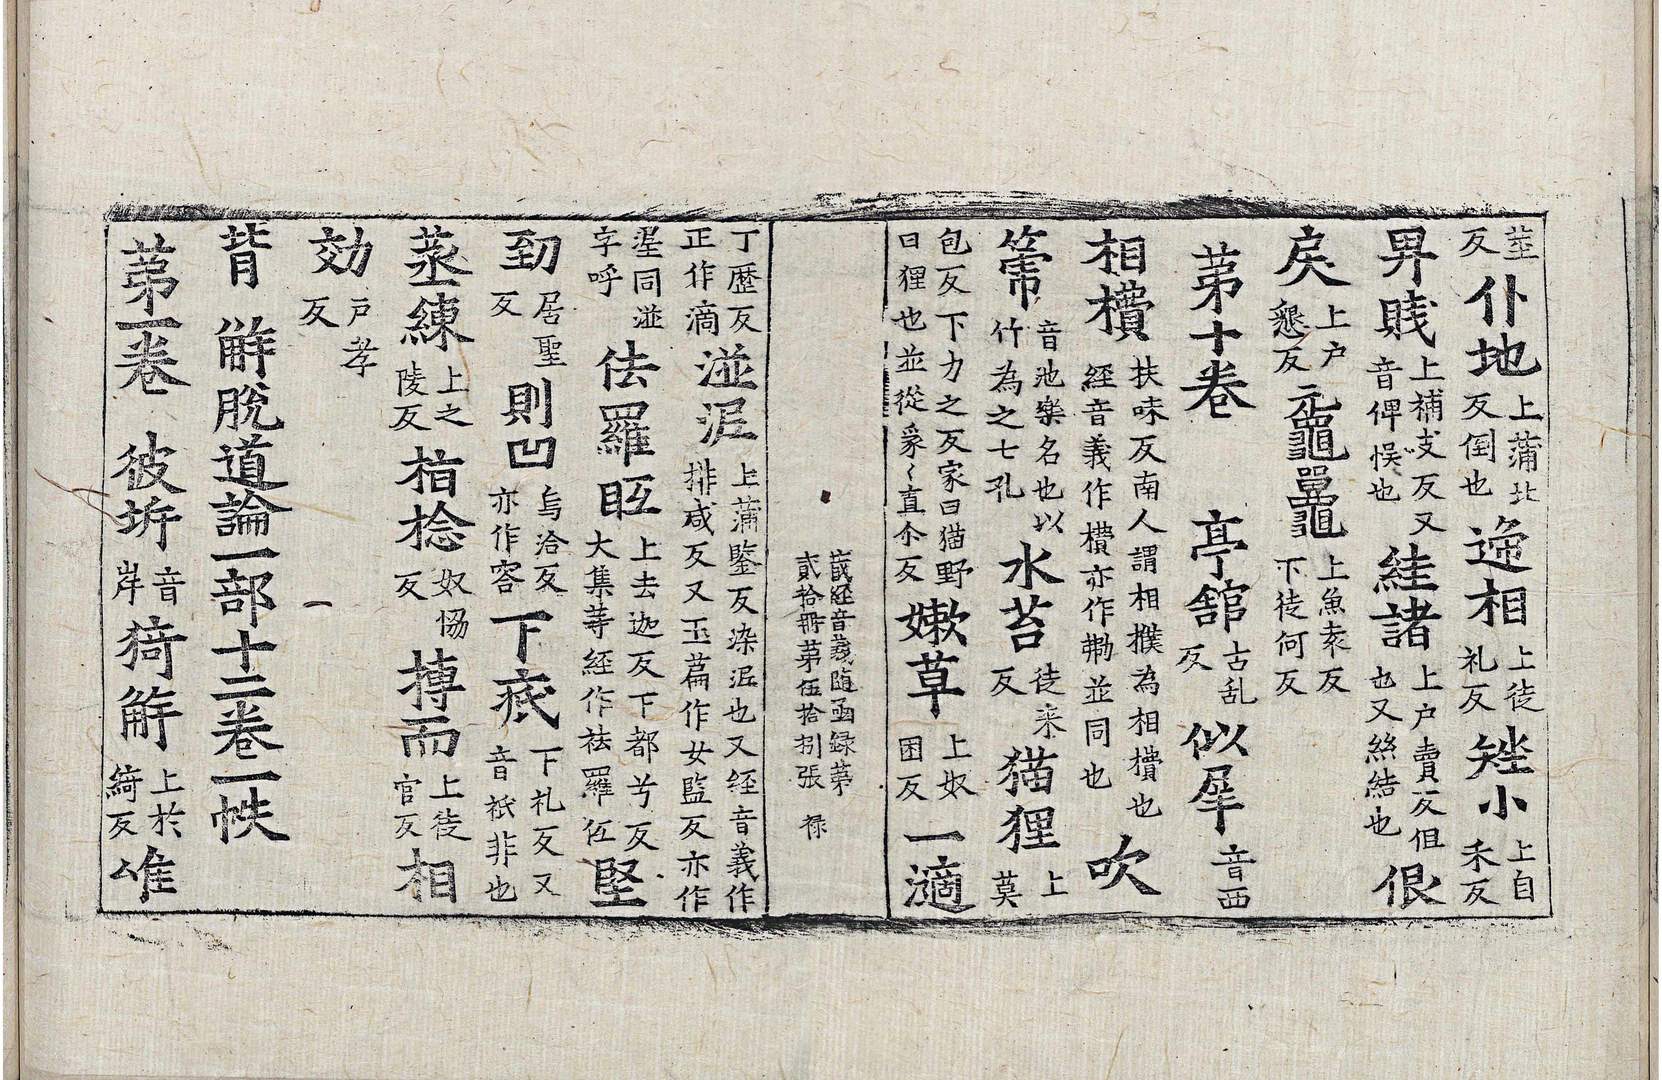 莖反仆地上蒲北反倒也迯相上徒礼反矬小上自禾反
畀賤上補支反又音俾悮也絓諸上户賣反佷也又絲結也佷
戾上户懇反元龜鼉上魚袁反下徒何反
苐十卷 亭舘古乱反似犀音西
相㩌扶味反南人謂相撲為相㩌也經音義作㩌亦作𢵧並同也吹
箎音池樂名也以竹為之七孔水苔徒来反猫狸上莫
包反下力之反家曰猫野曰狸也並從豸〻直尒反嫰草上奴困反一滴
藏經音義随函録苐貳拾冊苐伍拾捌張 禄
丁歷反正作滴湴泥上蒲鑒反染泥也又經音義作排咸反又玉萹作女監反亦作
埿同湴字呼佉羅眍上去迦反下都兮反大集䓁經作袪羅伭堅
㓛居聖反則凹烏洽反亦作容下疧下礼反又音祇非也
蒸練上之陵反㨒捻奴恊反摶而上徒官反相
効户孝反
背 觧脫道論一部十二卷一帙
苐一卷 彼坼音岸猗觧上於綺反雄